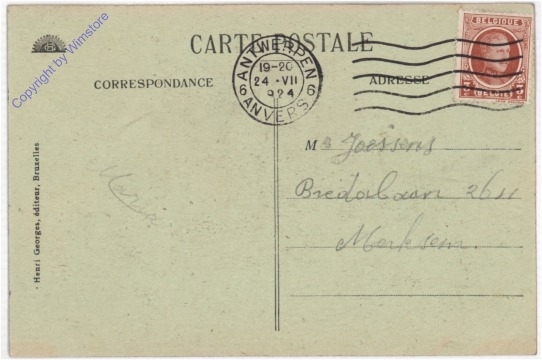 Copyright by Wimstore
CARTE POSTALE
CORRESPONDANCE
ADRESSE
ANTWERPEN
19-20
24 -VII
924
6 6
ANVERS
BELGIQUE
BELGIË
Me Joossens
Bredabaan
Merksem.
Maria
Henri Georges, éditeur, Bruxelles